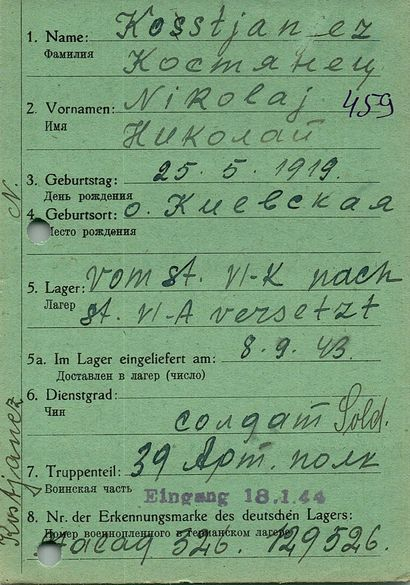 1. Name: Kosstjanez
Фамилия Костянец
2. Vornamen: Nikolaj 459
Имя Николай
3. Geburtstag: 25. 5. 1919.
День рождения
4. Geburtsort: о. Киевская
Место рождения
5. Lager: vom St. VI-K nach
Лагер St. VI-A versetzt
5a. Im Lager eingeliefert am: 8. 9. 43
Доставлен в лагер (число)
6. Dienstgrad:
Чин солдат Sold.
7. Truppenteil: 39 Арт. полк
Воинская часть Eingang 18.1.44
8. Nr. der Erkennungsmarke des deutschen Lagers:
Номер военнопленного в германском лагере
Шталаг 326. 129526.
Kostjanez N.